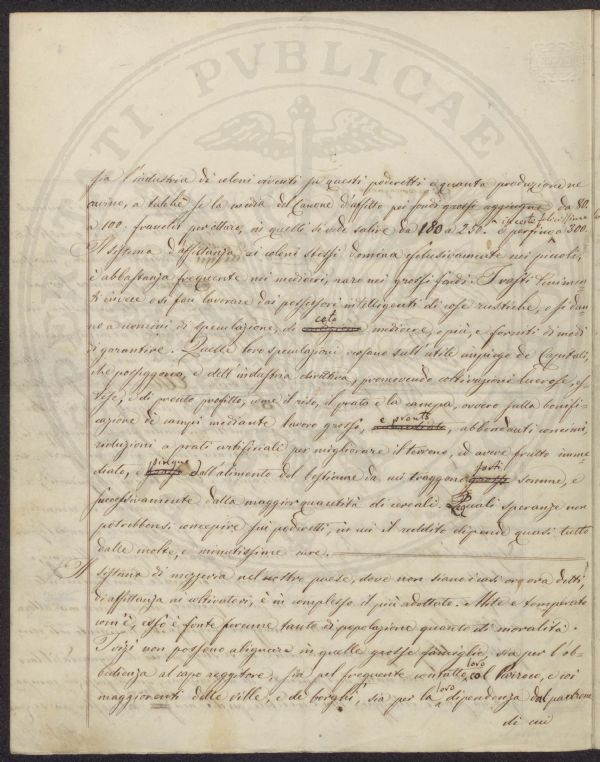 PUBLICAE
sia l'industria di coloni viventi su questi poderetti e quanta produzione ne
ravvino, a talchè se la media del Canone d'affitto pei fondi grossi aggiunge da 80.
a 100. franchi per ettare, in quelli si vede salire da 180 a 250. e perfino a 300.
Il sistema d'affittanza, ai coloni stessi domina esclusivamente nei piccoli,
è abbastanza frequente nei mediocri, raro nei grossi fondi. I vasti tenimen-
ti invece o si fan lavorare dai possessori intelligenti di cose rustiche, o si dan-
no a uomini di speculazione, di ceto mediocre, o più, e forniti di modi
di garantire. Queste loro speculazioni versano sull'utile impiego de' Capitali,
che posseggono, e dell'industria direttiva, promovendo coltivazioni lucrose, es-
tese, e di pronto profitto, come il riso, il prato e la canapa, ovvero sulla bonifi-
cazione di campi mediante lavoro grosso, e pronto, abbondanti concimi,
riduzioni a prati artificiali per migliorare il terreno, ed avere frutto imme-
diato, e pingue dall'alimento del bestiame da cui traggono forti somme, e
successivamente dalla maggior quantità di cereali. Le quali speranze non
potrebbonsi concepire sui poderetti, in cui il reddito dipende quasi tutto
dalle molte, e minutissime cure.
Il sistema di mezzeria nel nostro paese, dove non siano i casi or ora detti,
di affittanza ai coltivatori, è in complesso il più adottato. Mite e temperato
com'è, esso è fonte perenne tanto di popolazione quanto di moralità.
I vizi non possono alignare in quelle grosse famiglie, sia per l'ob-
bedienza al capo reggitore, sia pel frequente contatto loro col Parroco, e coi
maggiorenti delle ville, e de' borghi, sia per la loro dipendenza dal padrone
di cui